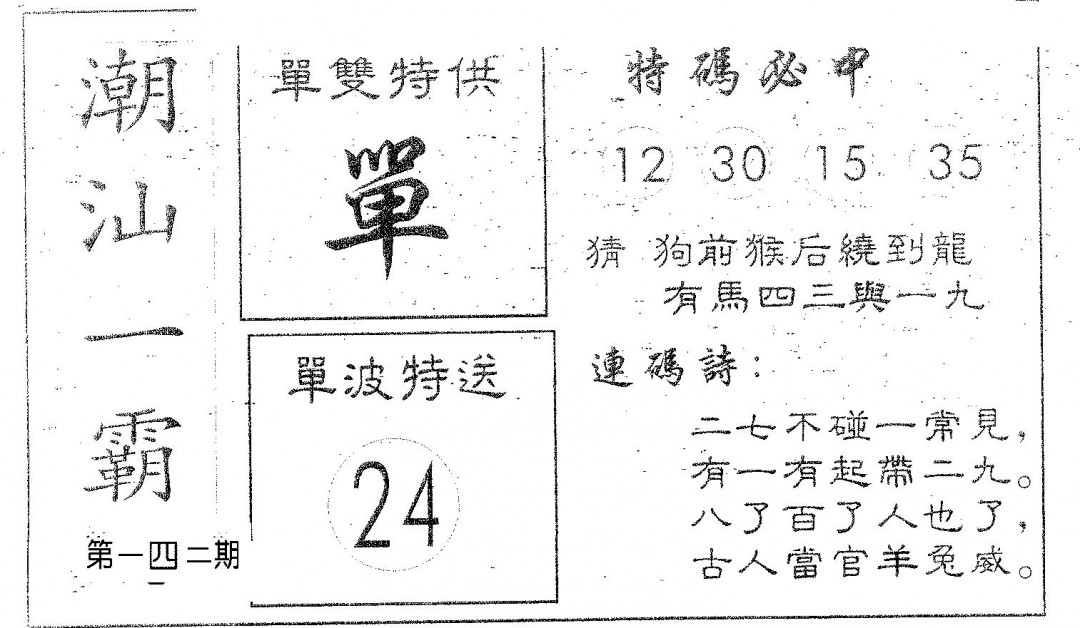 潮汕一霸
第一四二期
單雙特供
單
單波特送
24
特碼必中
12 30 15 35
猜 狗前猴后繞到龍
有馬四三與一九
連碼詩：
二七不碰一常見，
有一有起帶二九。
八了百了人也了，
古人當官羊兔威。